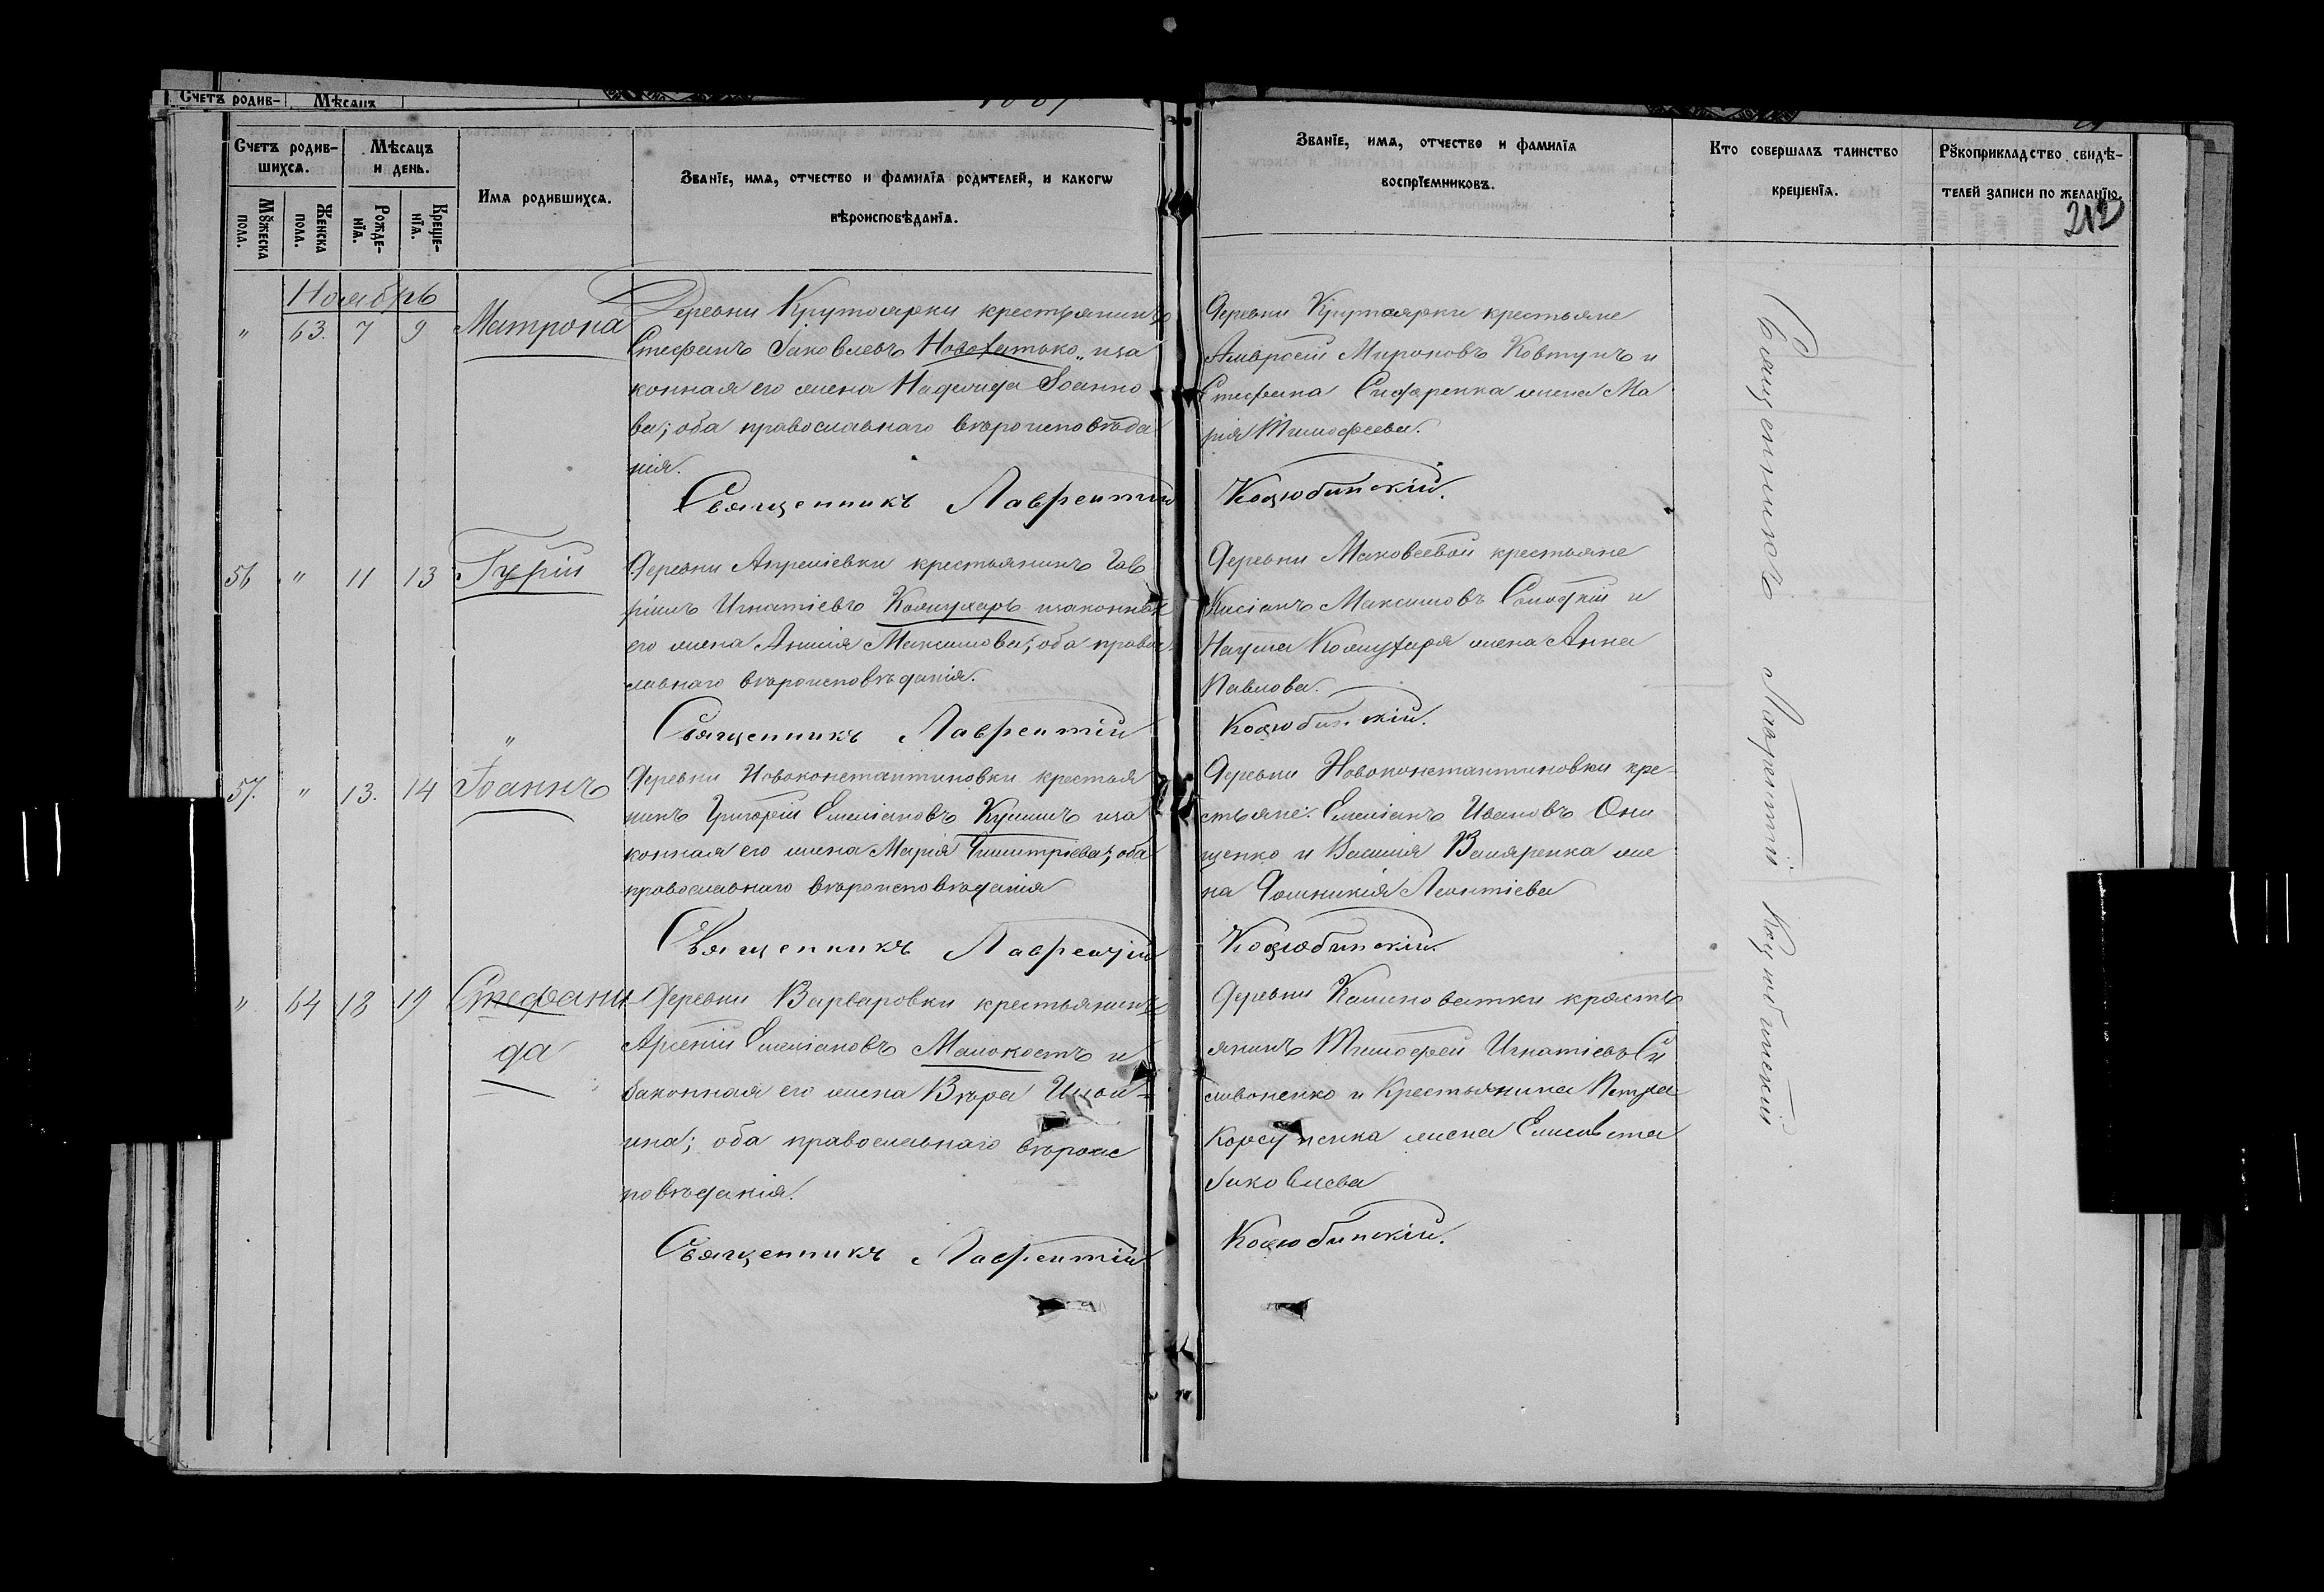 Счетъ родив- Мѣсяцъ
Счетъ родив-
шихся.
Мѣсяцъ
и день.
Имя родившихся.
Званїе, имя, отчество и фамилїя родителей, и какогѡ
вѣроисповѣданїя.
Мꙋжеска
пола.
Женска
пола.
Рожде-
нїя.
Креще-
нїя.
Званїе, имя, отчество и фамилїя
воспрїемниковъ.
Кто совершалъ таинство
крещенїя.
Рꙋкоприкладство свидѣ-
телей записи по желанїю.
212
Ноябрь
" 63. 7 9 Матрона
Деревни Крутоярки крестьянинъ
Стефанъ Іаковлевъ Новохатько, и за
конная его жена Наѳанаида Іоанно
ва; оба православнаго вѣроисповѣда
нія.
Священникъ Лаврентій
Деревни Крутоярки крестьяне
Амвросій Мироновъ Ковтунъ и
Стефана Сидаренка жена Ма
рія Тимофеева.
Коцюбинскій.
56 " 11 13 Гурій
Деревни Апреліевки крестьянинъ Гав
ріилъ Игнатіевъ Кожухарь и законная
его жена Анна Максимова; оба право
славнаго вѣроисповѣданія.
Священникъ Лаврентій
Деревни Маковеевой крестьяне
Максимовъ и
Наума Кожухаря жена Анна
Павлова.
Коцюбинскій.
57. " 13. 14 Іоаннъ
Деревни Новоконстантиновки крестья
нинъ Григорій Емеліановъ Кушниъ и за
конная его жена Марія Димитріева; оба
православнаго вѣроисповѣданія
Священникъ Лаврентій
Деревни Новоконстантиновки кре
стьяне: Емеліанъ Ивановъ Они
щенко и Василія жe
на Домникія Леонтіева
Коцюбинскій.
" 64 18 19 Стефани
да
Деревни Варваровки крестьянинъ
Арсеній Емеліановъ Малокостъ и
законная его жена Вѣра Ильи-
ина; оба православнаго вѣроис
повѣданія.
Священникъ Лаврентій
Деревни Калиноватки кресть
янинъ Тимофей Игнатіевъ Си
ливоненко и Крестьянина Петра
Корсуненка жена Елисавета
Іаковлева
Коцюбинскій.
Священникъ Лаврентій Коцюбинскій